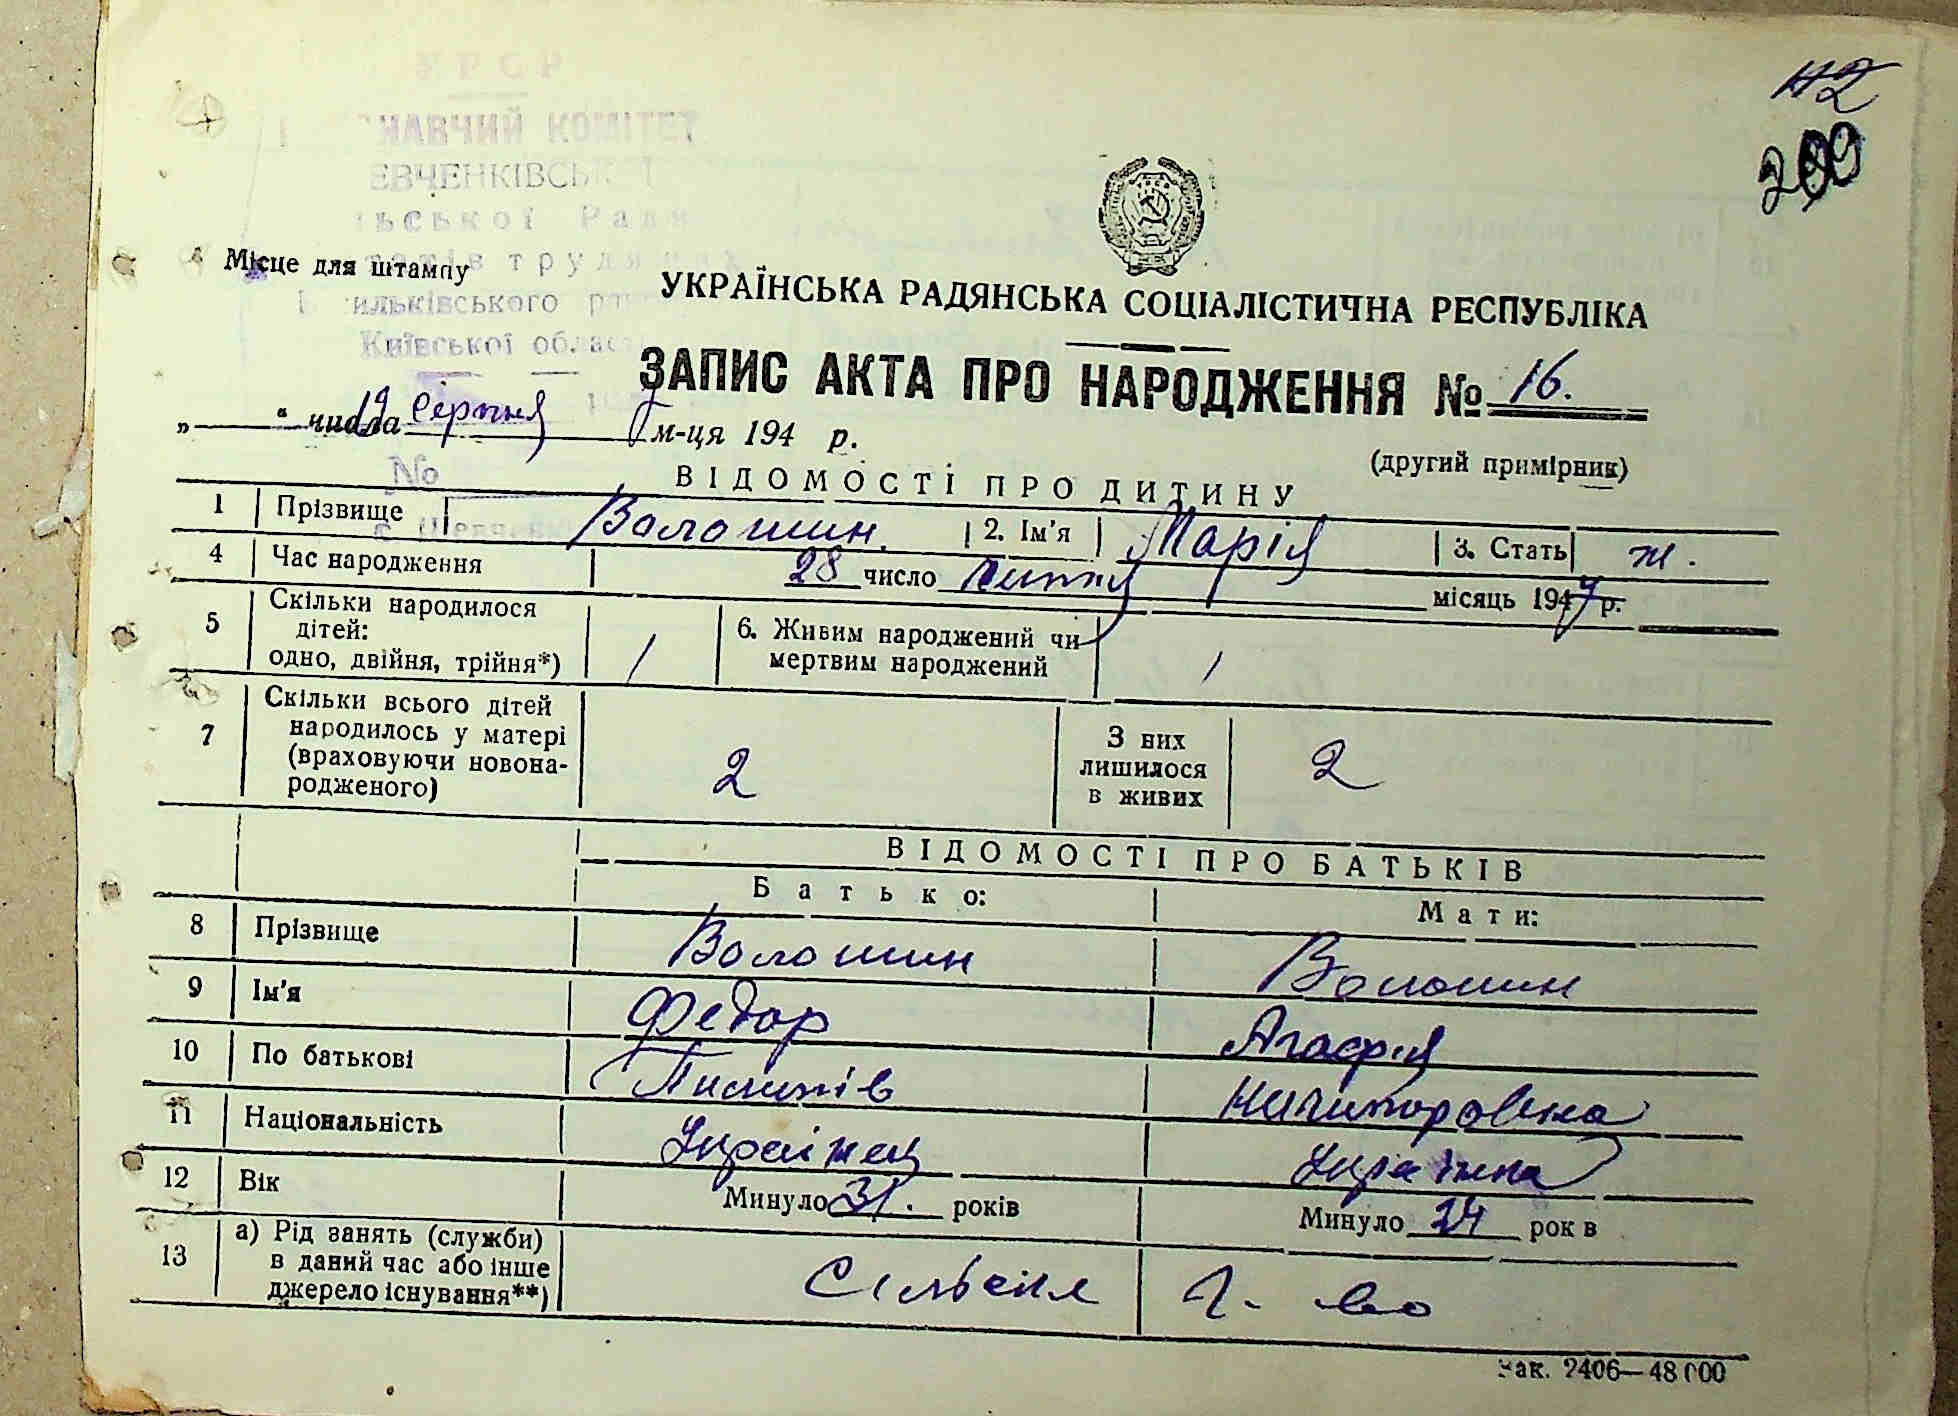 42
200
УРСР
НАВЧИЙ КОМІТЕТ
ЕВЧЕНКІВСЬ
ської Ради
тів трудя
Місце для штампу
ильківського
Київської облас
УКРАЇНСЬКА РАДЯНСЬКА СОЦІАЛІСТИЧНА РЕСПУБЛІКА
ЗАПИС АКТА ПРО НАРОДЖЕННЯ № 16.
„ “ числа 19 серпня м-ця 194 р.
(другий примірник)
№
ВІДОМОСТІ ПРО ДИТИНУ
1 Прізвище Волошин. 2. Ім'я Марія 3. Стать ж.
4 Час народження 28 число липня місяць 1947 р.
5 Скільки народилося дітей: одно, двійня, трійня*) 1 6. Живим народжений чи мертвим народжений 1
7 Скільки всього дітей народилось у матері (враховуючи новонародженого) 2 З них лишилося в живих 2
ВІДОМОСТІ ПРО БАТЬКІВ
Батько: Мати:
8 Прізвище Волошин Волошин
9 Ім'я Федор Агафія
10 По батькові Пилипів Ничипоровна
11 Національність Українец Українка
12 Вік Минуло 31. років Минуло 24 рок в
13 а) Рід занять (служби) в даний час або інше джерело існування**) Сільське г-во
Зак. 2406—48000